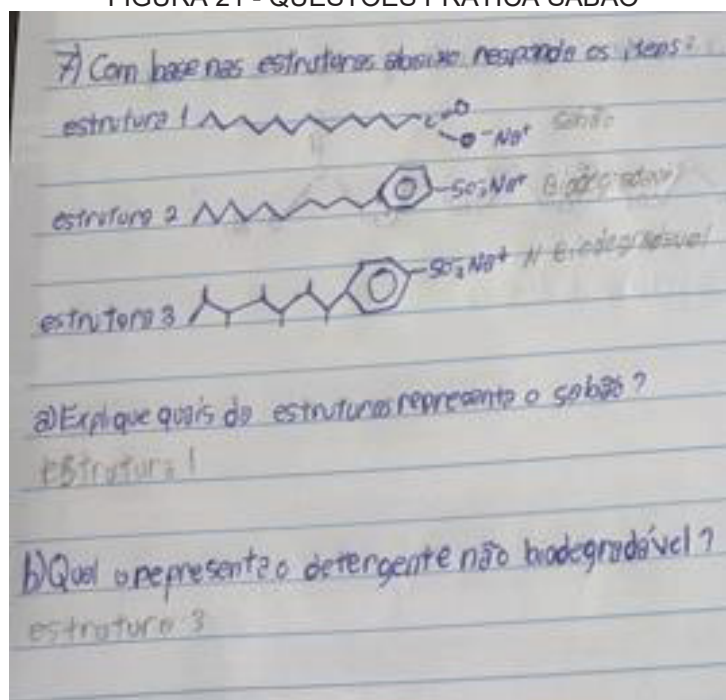 FIGURA 21 - QUESTÕES PRÁTICA SABÃO
7) Com base nas estruturas abaixo, responda os itens:
estrutura 1 C O O⁻Na⁺ Sabão
estrutura 2 SO₃Na⁺ Biodegradavel
estrutura 3 SO₃Na⁺ N Biodegradavel
a) Explique quais da estruturas representa o sabão?
estrutura 1
b) Qual representa o detergente não biodegradável?
estrutura 3